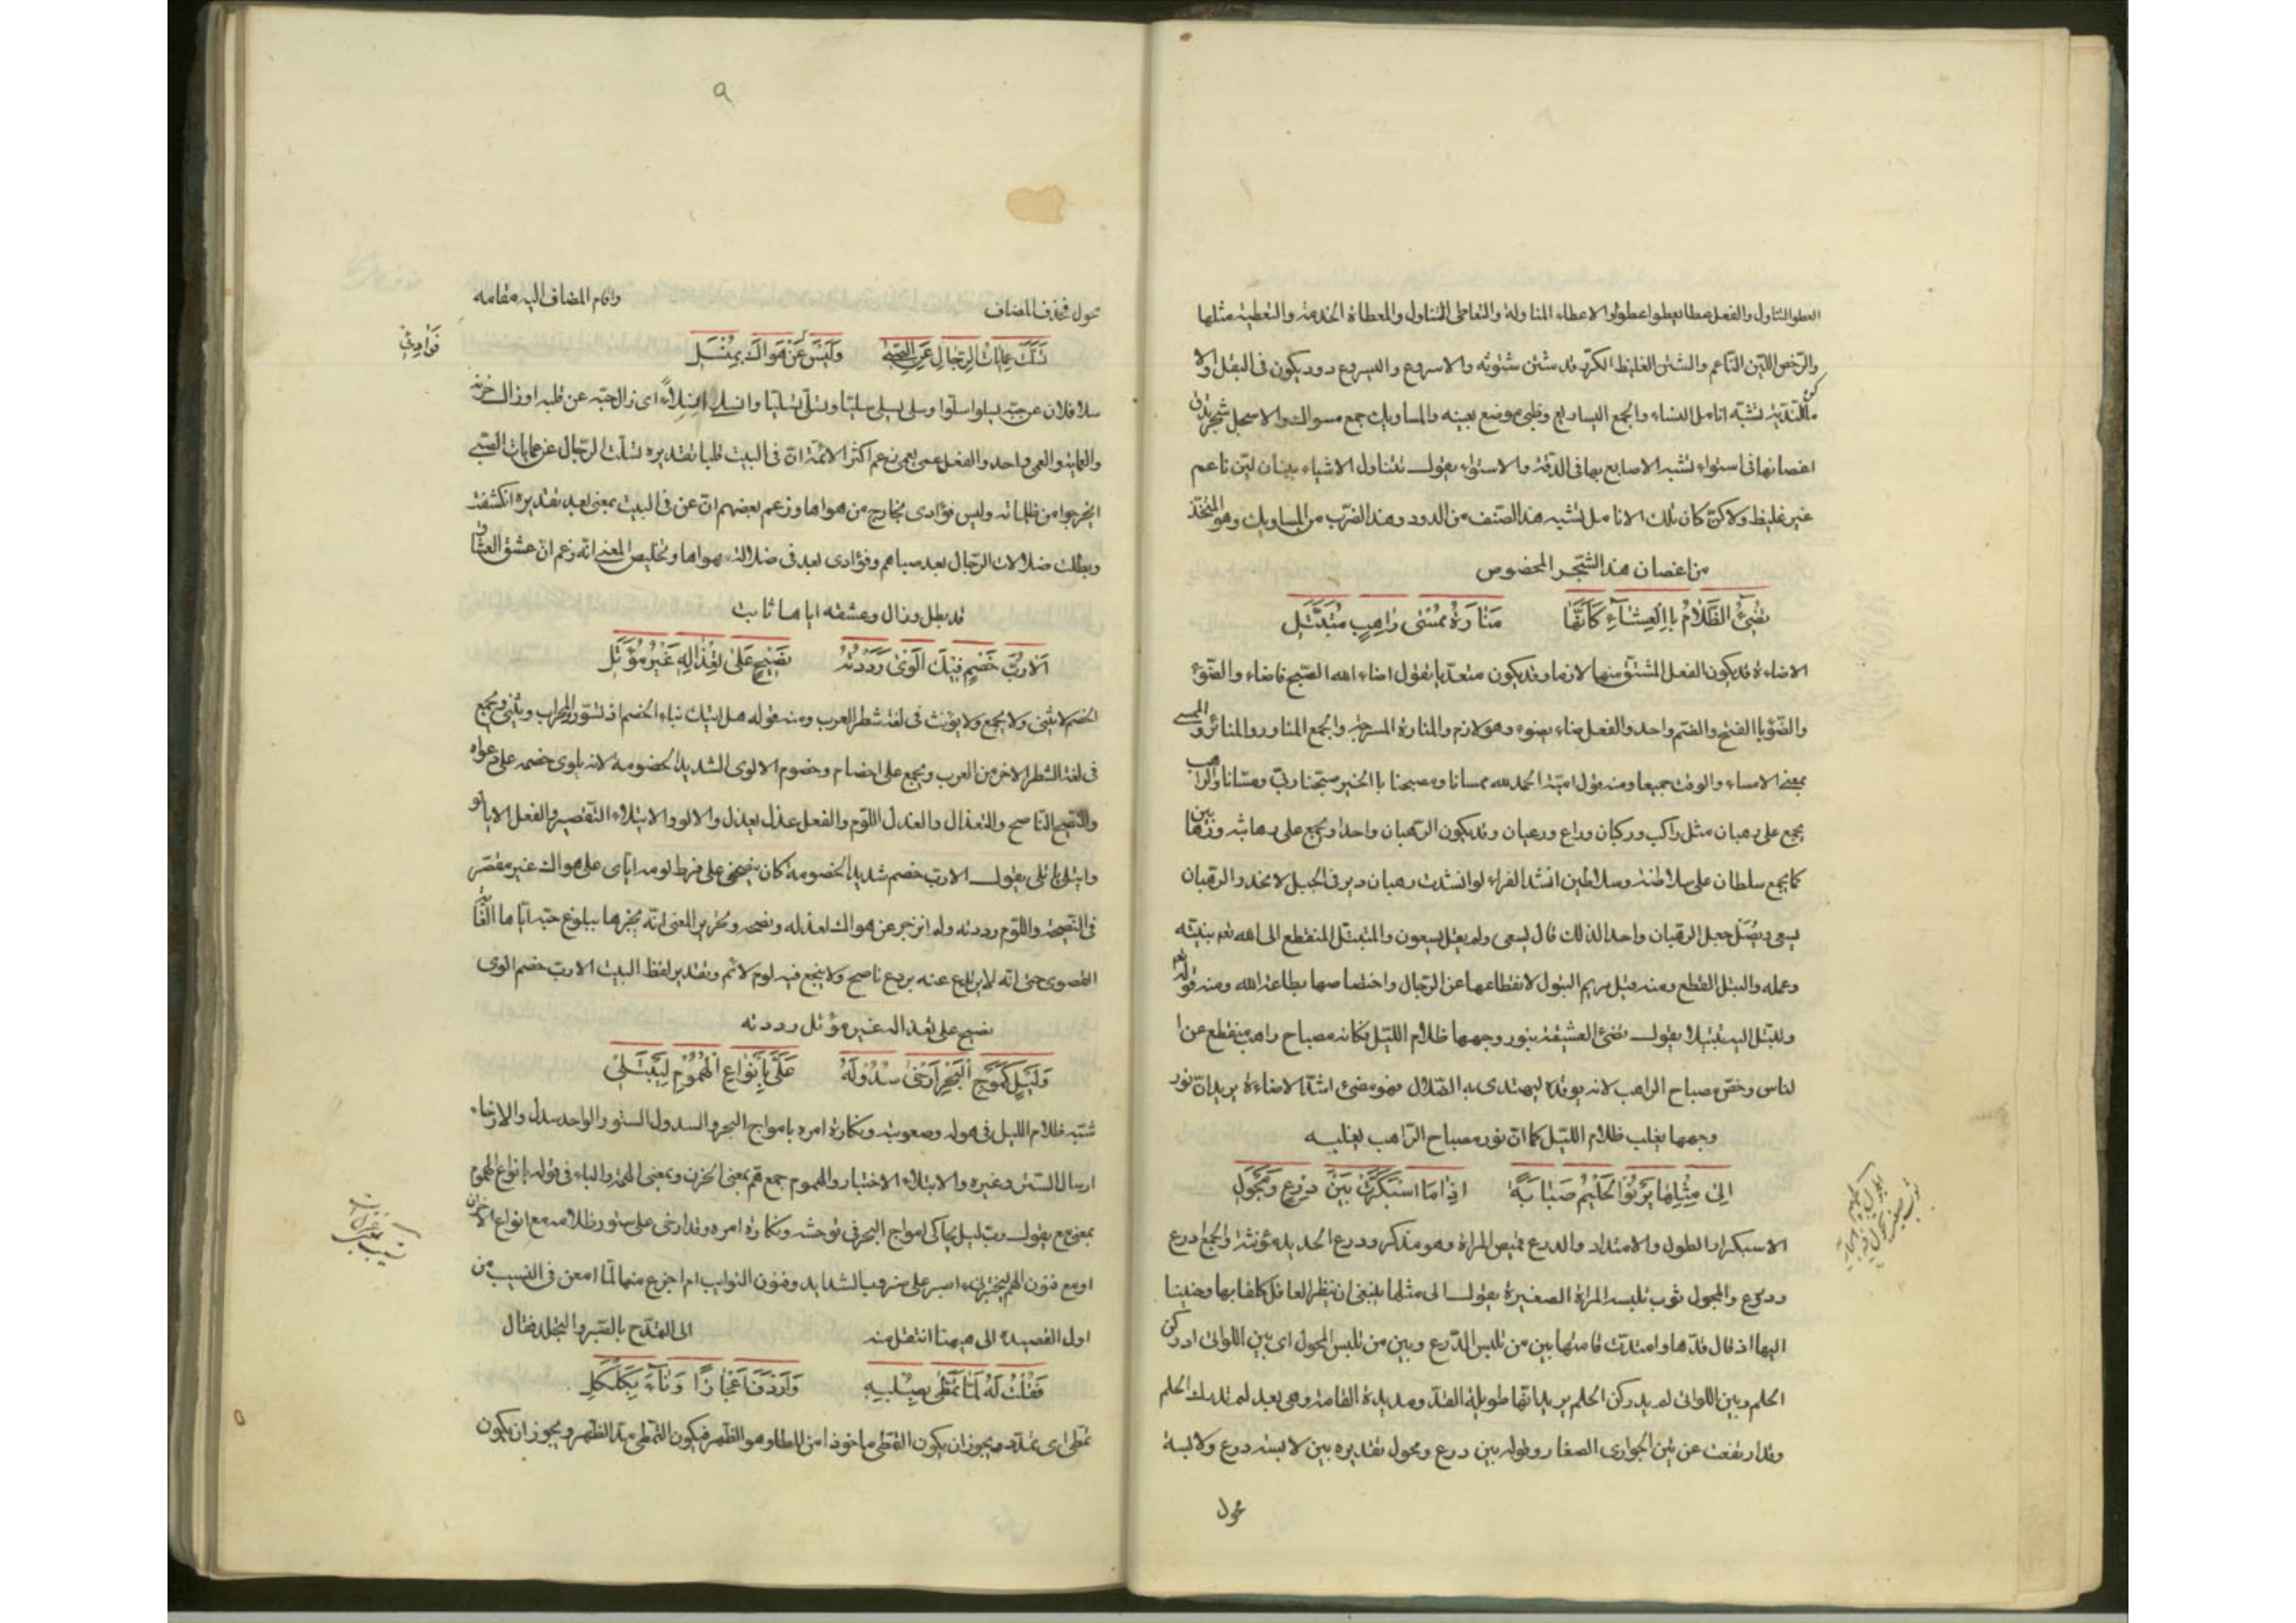 العطو التناول والفعل عطا يعطو اعطوا والاعطاء المناولة والتعاطى التناول والمعطاة الخدمة والتعطية مثلها
والرخص اللين الناعم والشثن الغليظ الكز وقد شثن شثونة والاسروع واليسروع دود يكون فى البقل والا
ماكن الندية تشبه انامل النساء والجمع اليساريع وظبى موضع بعينه والمساويك جمع مسواك والاسحل شجر تدق
اغصانها فى استواء تشبه الاصابع بها فى الدقة والاستواء يقول تتناول الاشياء ببنان لين ناعم
غير غليظ ولا كز كان تلك الانامل تشبه هذا الصنف من الدود وهذا الضرب من المساويك وهو المتخذ
من اغصان هذا الشجر المخصوص
تُضِيءُ الظَّلَامَ بِالْعِشَاءِ كَأَنَّهَا مَنَارَةُ مُمْسَى رَاهِبٍ مُتَبَتِّلِ
الاضاءة قد يكون الفعل المشتق منها لازما وقد يكون متعديا تقول اضاء الله الصبح فاضاء والضوء
والضوء بالفتح والضم واحد والفعل ضاء يضوء وهو لازم والمنارة المسرجة والجمع المناور والمنائر والممسى
بمعنى الامساء والوقت جميعا ومنه قول امية الحمد لله ممسانا ومصبحنا بالخير صبحنا ربى ومسانا والراهب
يجمع على رهبان مثل راكب وركبان وراع ورعيان وقد يكون الرهبان واحدا ويجمع على رهابنة ورهابين
كما يجمع سلطان على سلاطنة وسلاطين انشد الفراء لو انشدت رهبان دير فى الجبل لانحدر الرهبان
يسعى ويصل جعل الرهبان واحدا لذلك قال يسعى ولم يقل يسعون والمتبتل المنقطع الى الله تعم بنيته
وعمله والبتل القطع ومنه قيل مريم البتول لانقطاعها عن الرجال واختصاصها بطاعة الله ومنه قوله تعم
وتبتل اليه تبتيلا يقول تضئ العشيقة بنور وجهها ظلام الليل فكانه مصباح راهب منقطع عن ا
لناس وخص مصباح الراهب لانه يوقده ليهتدى به الضلال فهو مضئ اشد الاضاءة يريد ان نور
وجهها يغلب ظلام الليل كما ان نور مصباح الراهب يغلبه
اِلَى مِثْلِهَا يَرْنُوا الْحَلِيمُ صَبَابَةً اِذَا مَا اسْبَكَرَّتْ بَيْنَ دِرْعٍ وَمِجْوَلِ
الاسبكرار الطول والامتداد والدرع قميص المراة وهو مذكر ودرع الحديد مؤنثة والجمع ادرع
ودروع والمجول ثوب تلبسه المراة الصغيرة يقول الى مثلها ينبغى ان ينظر العاقل كلفا بها وحنينا
اليها اذ طال قدها وامتدت قامتها بين من تلبس الدرع وبين من تلبس المجول اى بين اللواتى ادركن
الحلم وبين اللواتى لم يدركن الحلم يريد انها طويلة القد ومديدة القامة وهى بعد لم تدرك الحلم
وقد ارتفعت عن سن الجوارى الصغار وقوله بين درع ومجول تقديره بين لابسة درع ولابسة
مجول
٩
مجول فحذف المضاف واقام المضاف اليه مقامه
تَسَلَّتْ عَمَايَاتُ الرِّجَالِ عَنِ الصِّبَى وَلَيْسَ عَنْ هَوَاكَ بِمُنْسَلِ
فؤادى
سلا فلان عن حبه يسلو اسلوا وسلى يسلى سليا وتسلى تسليا وانسلى انسلاء اى زال حبه عن قلبه او زال حزنه
والعماية والعمى واحد والفعل عمى يعمى زعم اكثر الائمة ان فى البيت قلبا تقديره تسلت الرجال عن عمايات الصبى
اى خرجوا من ظلماته وليس فؤادى بخارج من هواها وزعم بعضهم ان عن فى البيت بمعنى بعد تقديره انكشفت
وبطلت ضلالات الرجال بعد صباهم وفؤادى بعد فى ضلالة هواها وتلخيص المعنى انه زعم ان عشق العشاق
قد بطل وزال وعشقه اياها ثابت
اَلَا رُبَّ خَصْمٍ فِيكَ اَلْوَى رَدَدْتُهُ نَصِيحٍ عَلَى تَعْذَالِهِ غَيْرِ مُؤْتَلِ
الخصم لا يثنى ولا يجمع ولا يؤنث فى لغة شطر العرب ومنه قوله هل اتيك نباء الخصم اذ تسوروا المحراب ويثنى ويجمع
فى لغة الشطر الاخر من العرب ويجمع على اخصام وخصوم الالوى الشديد الخصومة لانه يلوى خصمه على دعواه
والنصيح الناصح والتعذال والعذل اللوم والفعل عذل يعذل والالو والايتلاء التقصير والفعل الا يالو
وايتلى ياتلى يقول الا رب خصم شديد الخصومة كان ينصحنى على فرط لومه اياى على هواك غير مقصر
فى النصيحة واللوم رددته ولم انزجر عن هواك لعذله ونصحه وتحرير المعنى انه يخبرها ببلوغ حبه اياها الغاية
القصوى حتى انه لا يرتدع عنه بردع ناصح ولا ينجع فيه لوم لائم وتقدير لفظ البيت الا رب خصم الوى
نصيح على تعذاله غير مؤتل رددته
وَلَيْلٍ كَمَوْجِ الْبَحْرِ اَرْخَى سُدُولَهُ عَلَيَّ بِاَنْوَاعِ الْهُمُومِ لِيَبْتَلِى
شبه ظلام الليل فى هوله وصعوبته ونكارة امره بامواج البحر والسدول الستور الواحد سدل والارخاء
ارسال الستر وغيره والابتلاء الاختبار والهموم جمع هم بمعنى الحزن وبمعنى الهمة والباء فى قوله بانواع الهموم
بمعنى مع يقول رب ليل يحاكى امواج البحر فى توحشه ونكارة امره وقد ارخى على ستور ظلامه مع انواع الاحزان
او مع فنون الهم ليختبرنى ء اصبر على ضروب الشدايد وفنون النوايب ام اجزع منها لما امعن فى النسيب من
اول القصيدة الى هيهنا انتقل منه الى التمدح بالصبر والتجلد فقال
فَقُلْتُ لَهُ لَمَّا تَمَطَّى بِصُلْبِهِ وَاَرْدَفَ اَعْجَازًا وَنَآءَ بِكَلْكَلِ
تمطى اى تمدد ويجوز ان يكون التمطى ماخوذا من المطا وهو الظهر فيكون التمطى مد الظهر ويجوز ان يكون